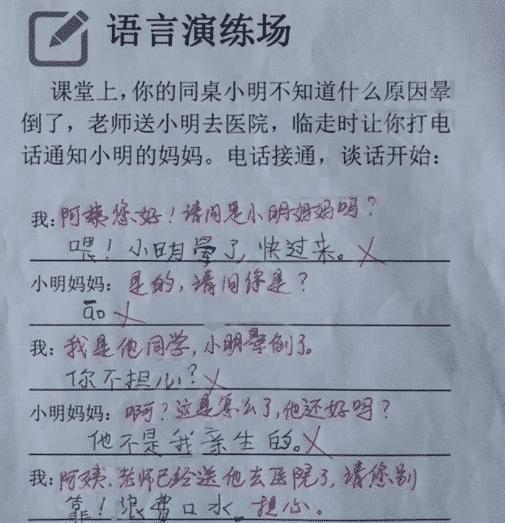 语言演练场
课堂上，你的同桌小明不知道什么原因晕
倒了，老师送小明去医院，临走时让你打电
话通知小明的妈妈。电话接通，谈话开始：
我：阿姨您好！请问是小明妈妈吗？
喂！小明晕了，快过来。
小明妈妈：是的，请问你是？
哦
我：我是他同学，小明晕倒了。
你不担心？
小明妈妈：啊？这是怎么了，他还好吗？
他不是我亲生的。
我：阿姨，老师已经送他去医院了，请您别
靠！浪费口水。担心。